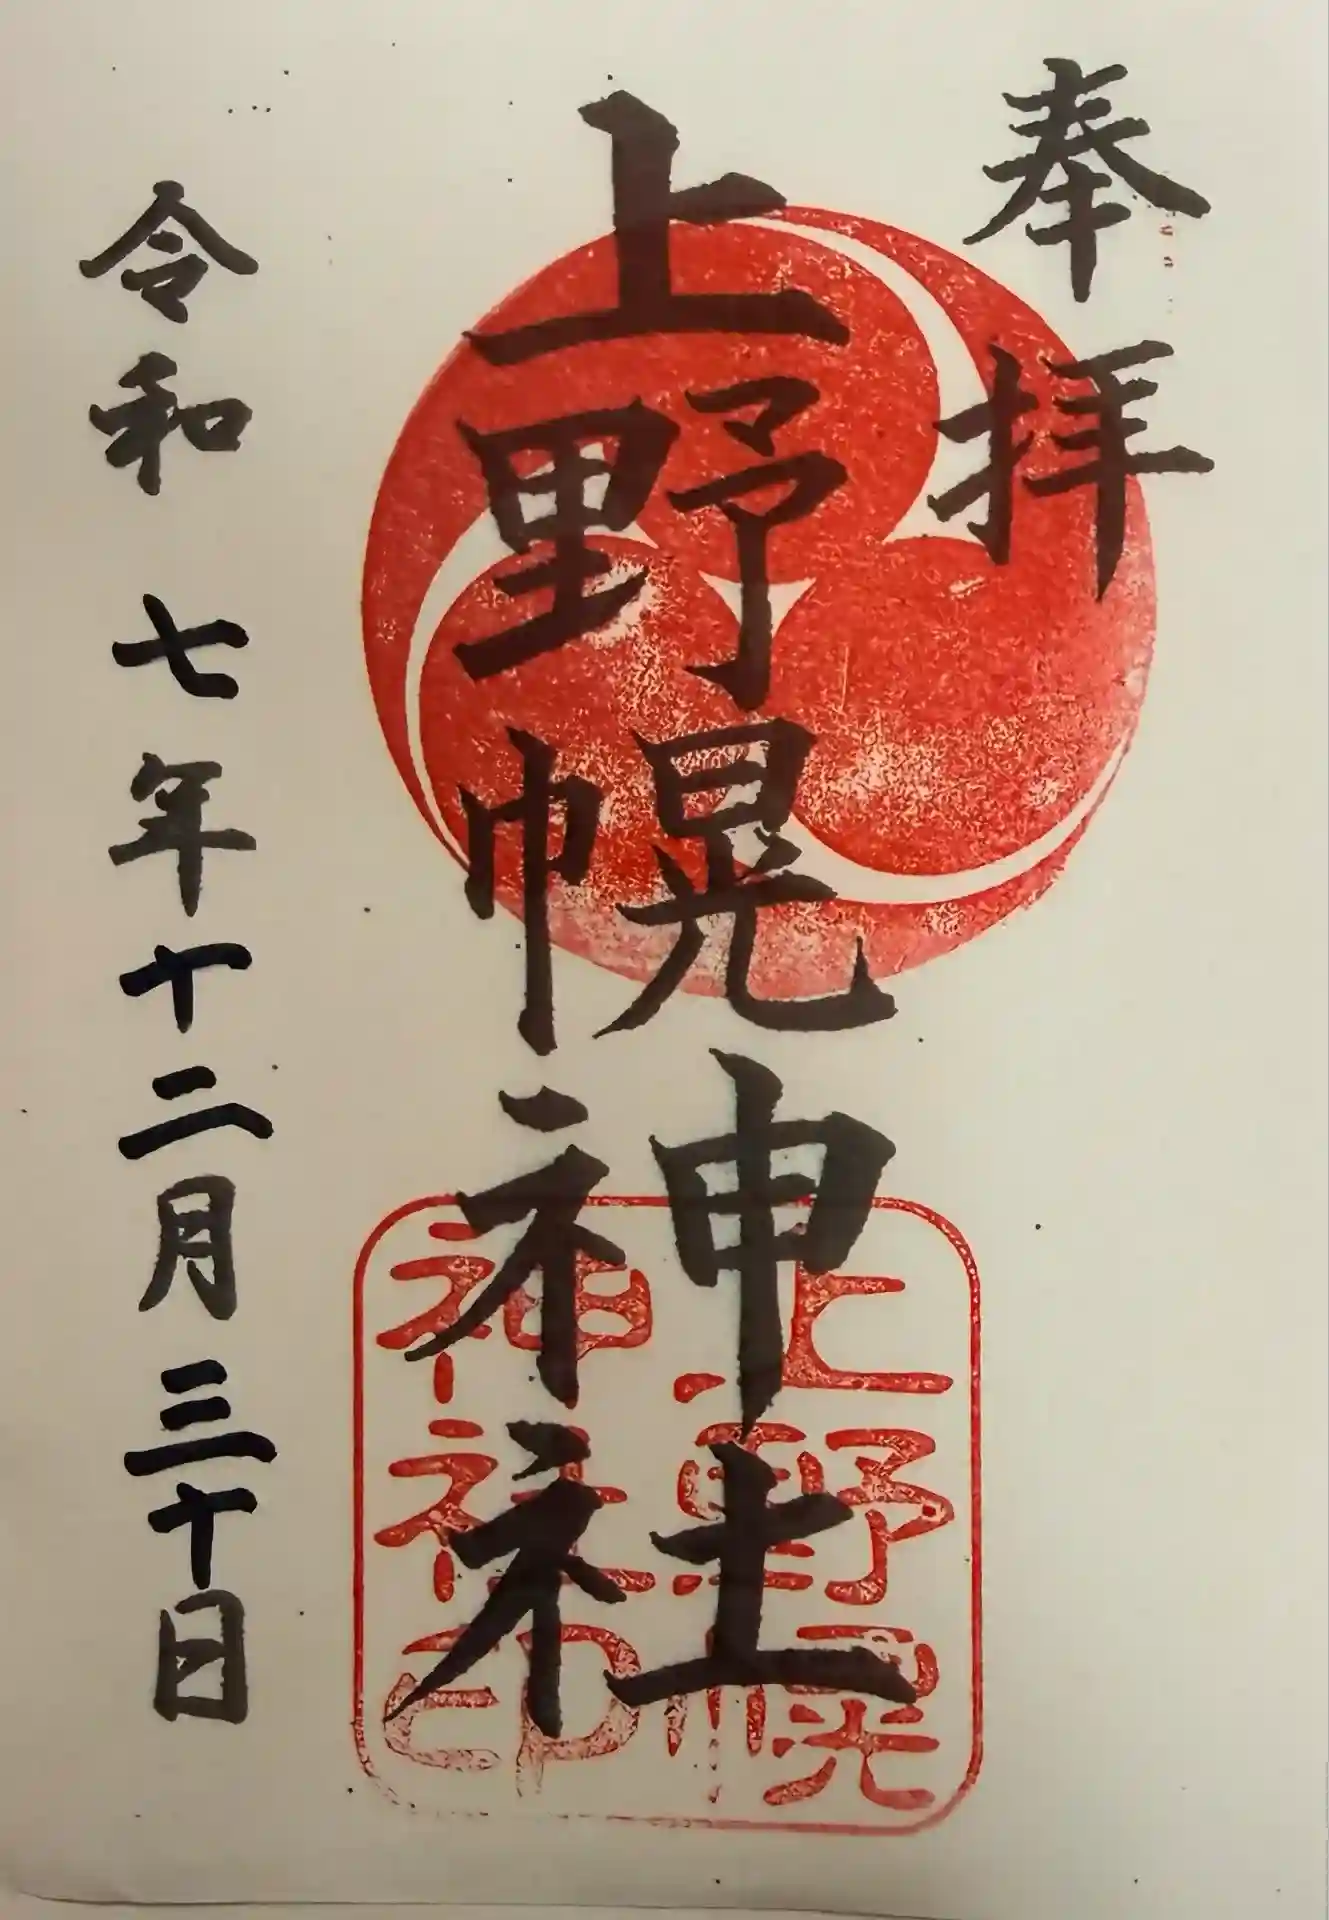 奉拝
上野幌神社
上野幌
神社印
令和七年十二月三十日